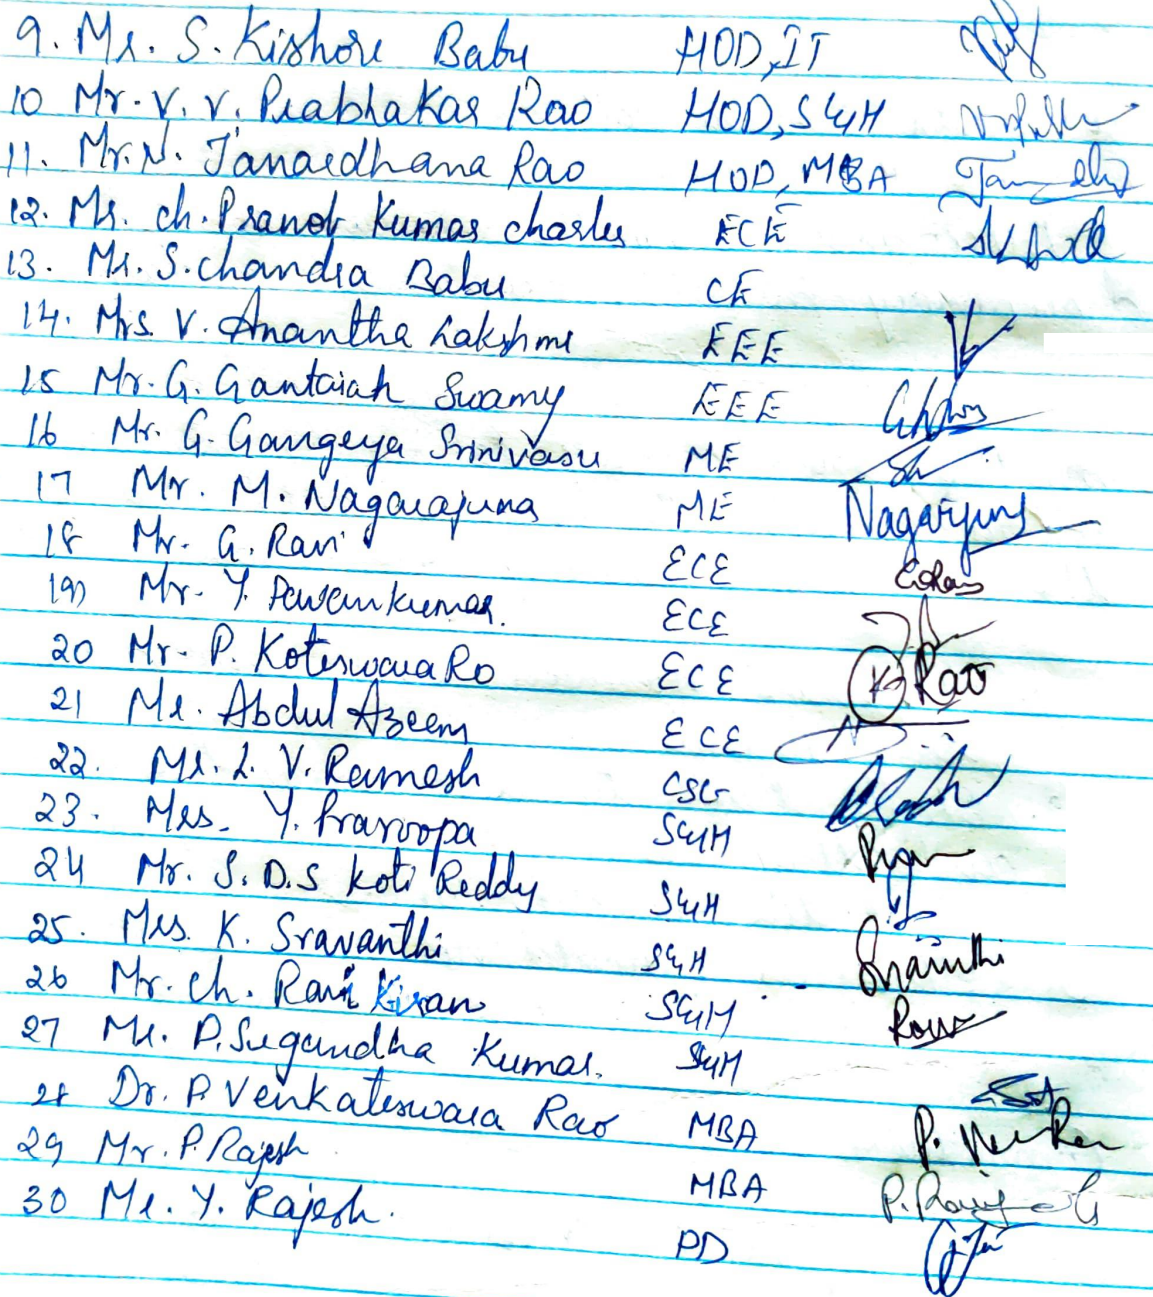 9. Mr. S. Kishore Babu HOD, IT
10 Mr. V. V. Prabhakar Rao HOD, S&H
11. Mr. N. Janardhana Rao HOD, MBA
12. Mr. ch. Pranob Kumar charles ECE
13. Mr. S. chandra Babu CE
14. Mrs. V. Anantha Lakshmi EEE
15 Mr. G. Gantaiah Swamy EEE
16 Mr. G. Gangeya Srinivasu ME
17 Mr. M. Nagarajuna ME Nagarjuna
18 Mr. G. Ravi ECE
19) Mr. Y. Pavan kumar. ECE
20 Mr. P. Koteswara Ro ECE K Rao
21 Mr. Abdul Azeem ECE
22. Mr. L. V. Ramesh CSE
23. Mrs. Y. Praroopa S&H
24 Mr. S. D. S Koti Reddy S&H
25. Mrs. K. Sravanthi S&H
26 Mr. ch. Ravi Kiran S&H
27 Mr. P. Sugandha Kumar. S&H
28 Dr. P. Venkateswara Rao MBA
29 Mr. P. Rajesh MBA
30 Mr. Y. Rajesh. PD